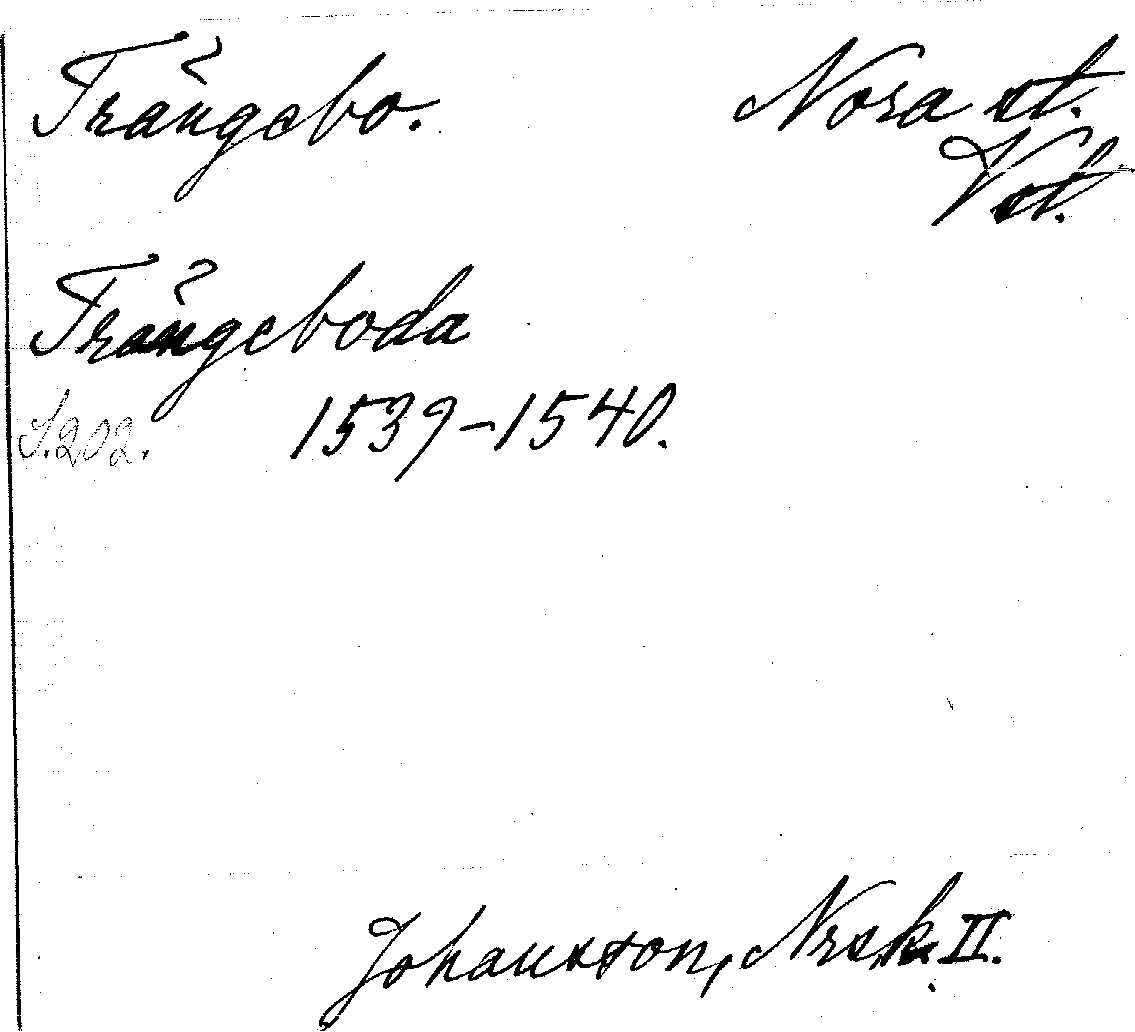 Trängebo. Nora st.
Vst.
Trängeboda
S. 202. 1539-1540.
Johansson, Nrsk. II.